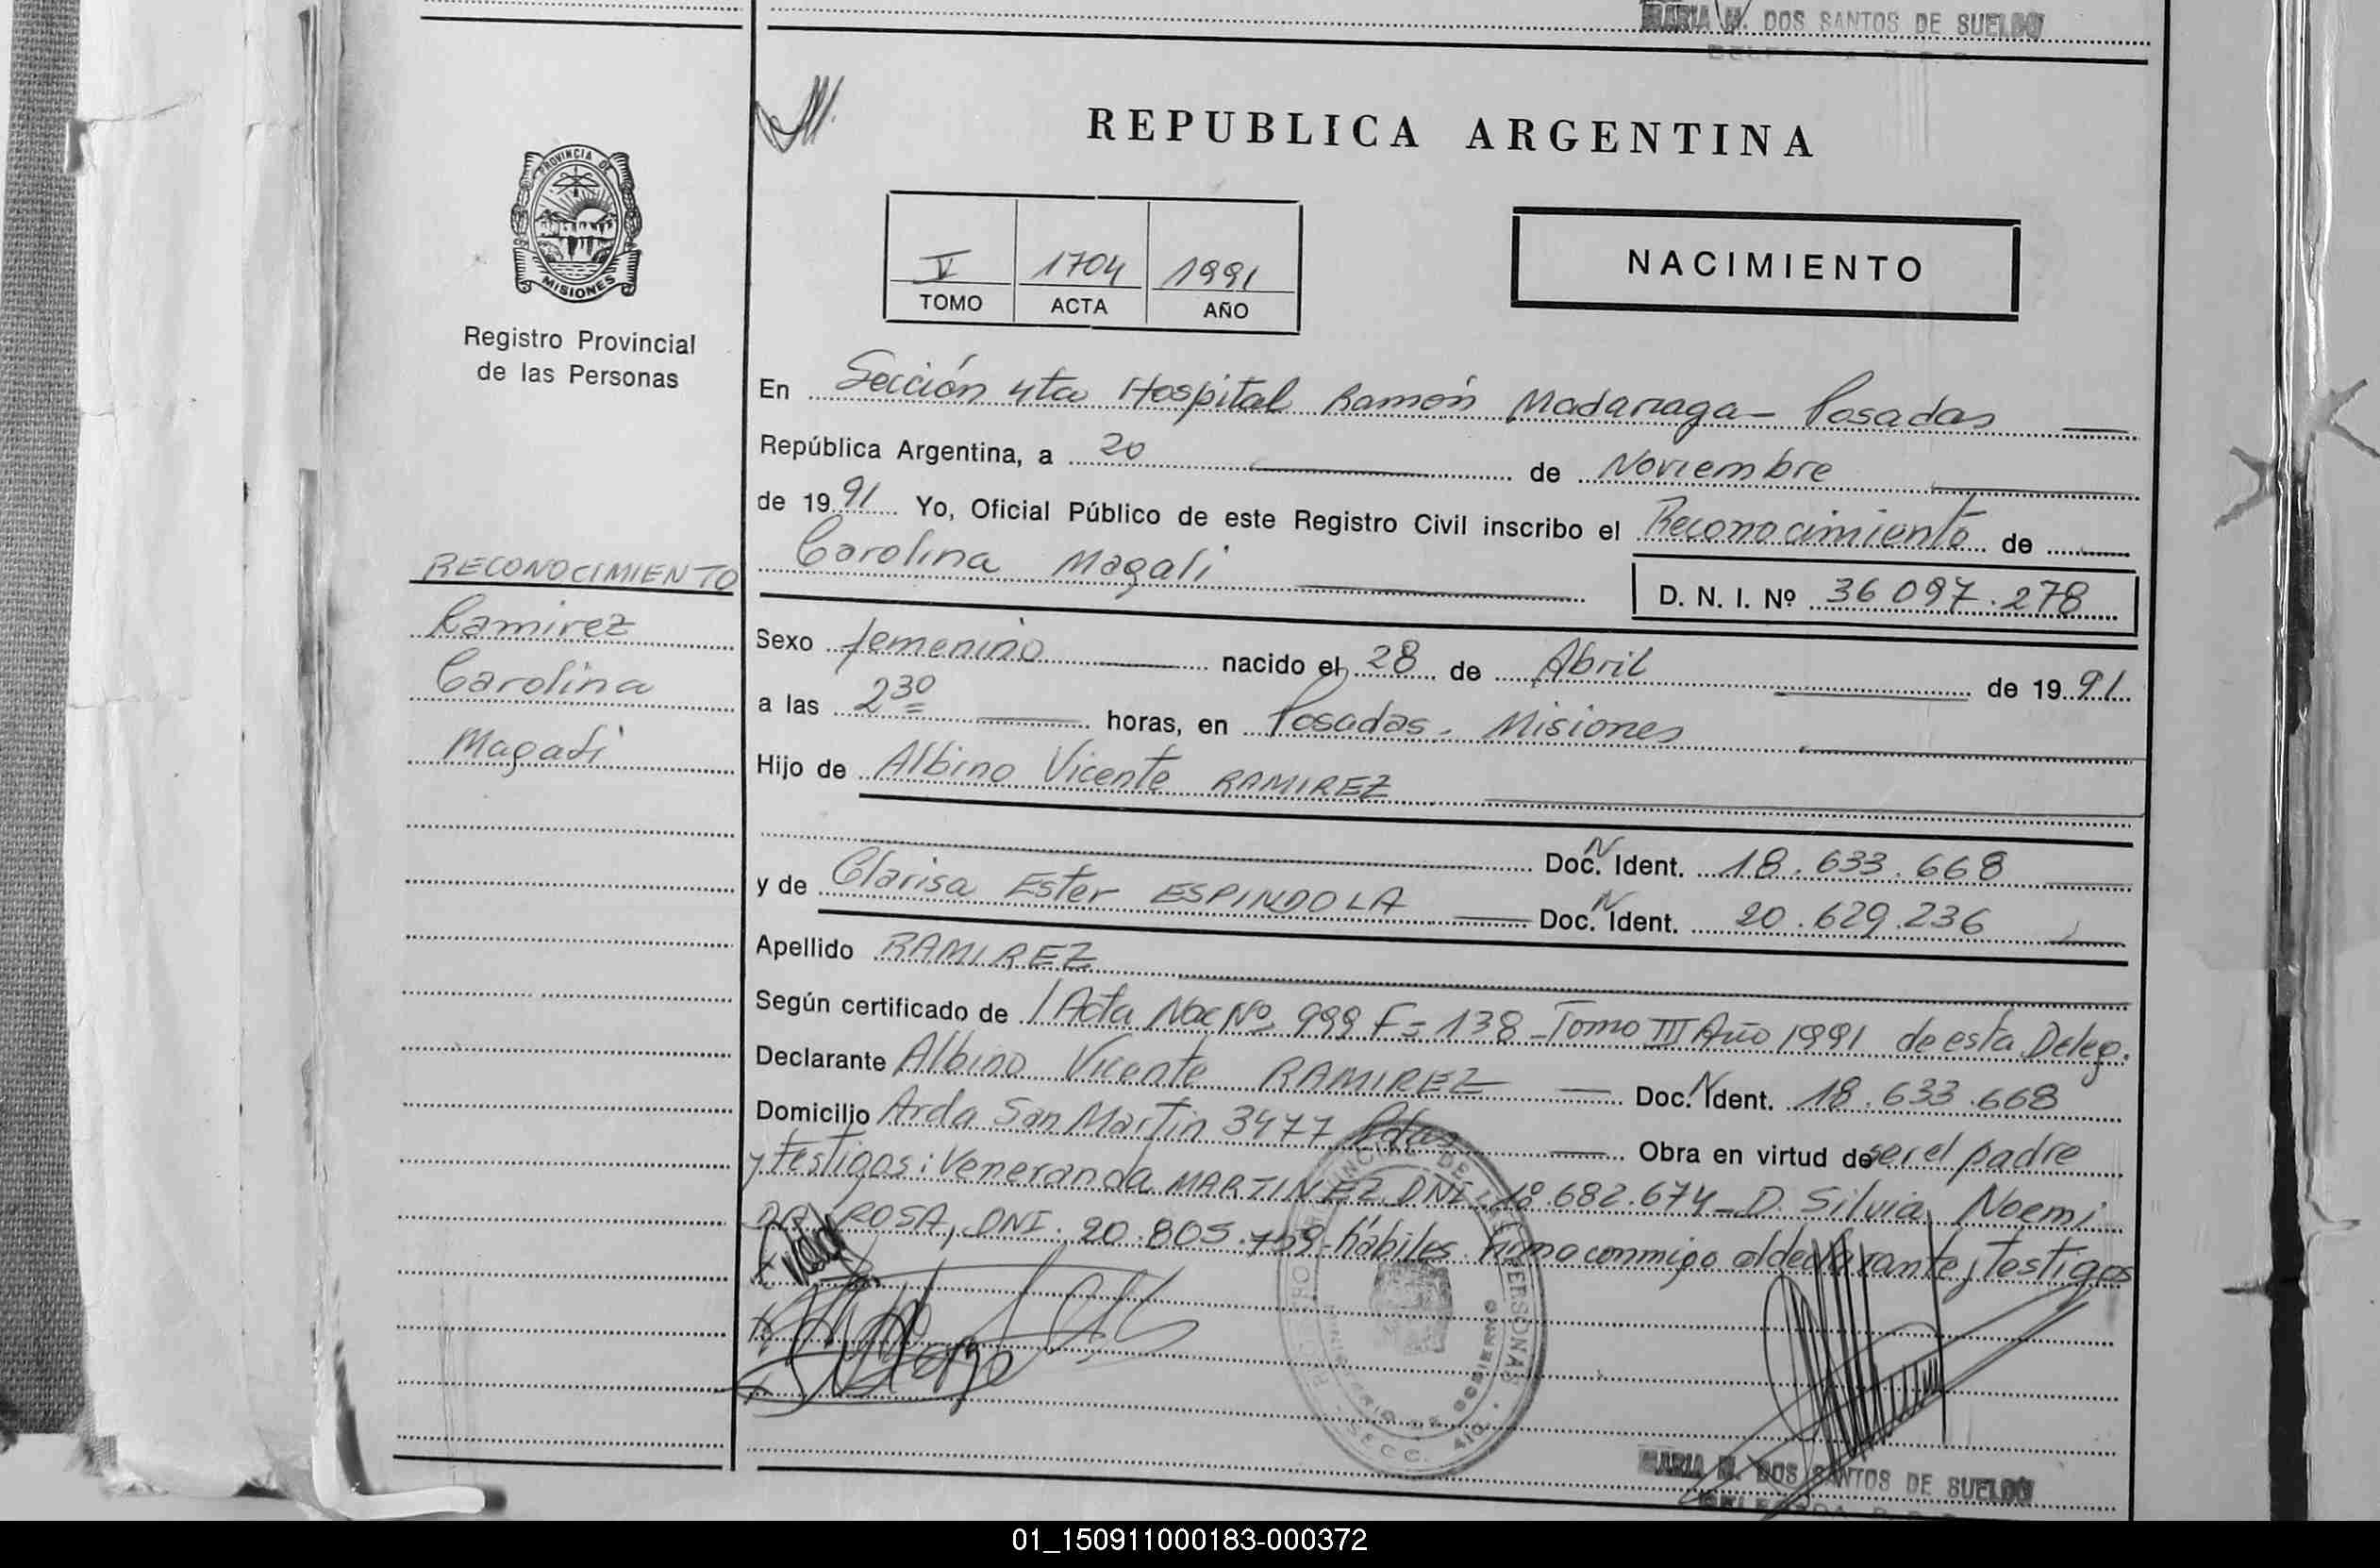 MARIA M. DOS SANTOS DE SUELDO
REPUBLICA ARGENTINA
PROVINCIA DE
MISIONES
Registro Provincial
de las Personas
NACIMIENTO
V 1704 1991
TOMO ACTA AÑO
En Sección 4ta Hospital Ramón Madariaga - Posadas
República Argentina, a 20 de Noviembre
de 1991 Yo, Oficial Público de este Registro Civil inscribo el Reconocimiento de
Carolina Magali
D. N. I. Nº 36 097.278
RECONOCIMIENTO
Ramirez
Carolina
Magali
Sexo femenino nacido el 28 de Abril de 1991
a las 2 30 horas, en Posadas - Misiones
Hijo de Albino Vicente RAMIREZ
Doc. N Ident. 18.633.668
y de Clarisa Ester ESPINDOLA Doc. N Ident. 20.629.236
Apellido RAMIREZ
Según certificado de / Acta Nac Nº 999 F= 138 - Tomo III Año 1991 de esta Deleg.
Declarante Albino Vicente RAMIREZ Doc. N Ident. 18.633.668
Domicilio Avda San Martin 3477 Pdas Obra en virtud de ser el padre
y testigos: Veneranda MARTINEZ DNI 682.674 - D. Silvia Noemi
DA ROSA, DNI. 20.805.759 - hábiles. firma conmigo el declarante y testigos
PROVINCIAL DE LAS PERSONAS
MINISTERIO DE GOBIERNO
SECC. 4ta.
MARIA M. DOS SANTOS DE SUELDO
01_150911000183-000372